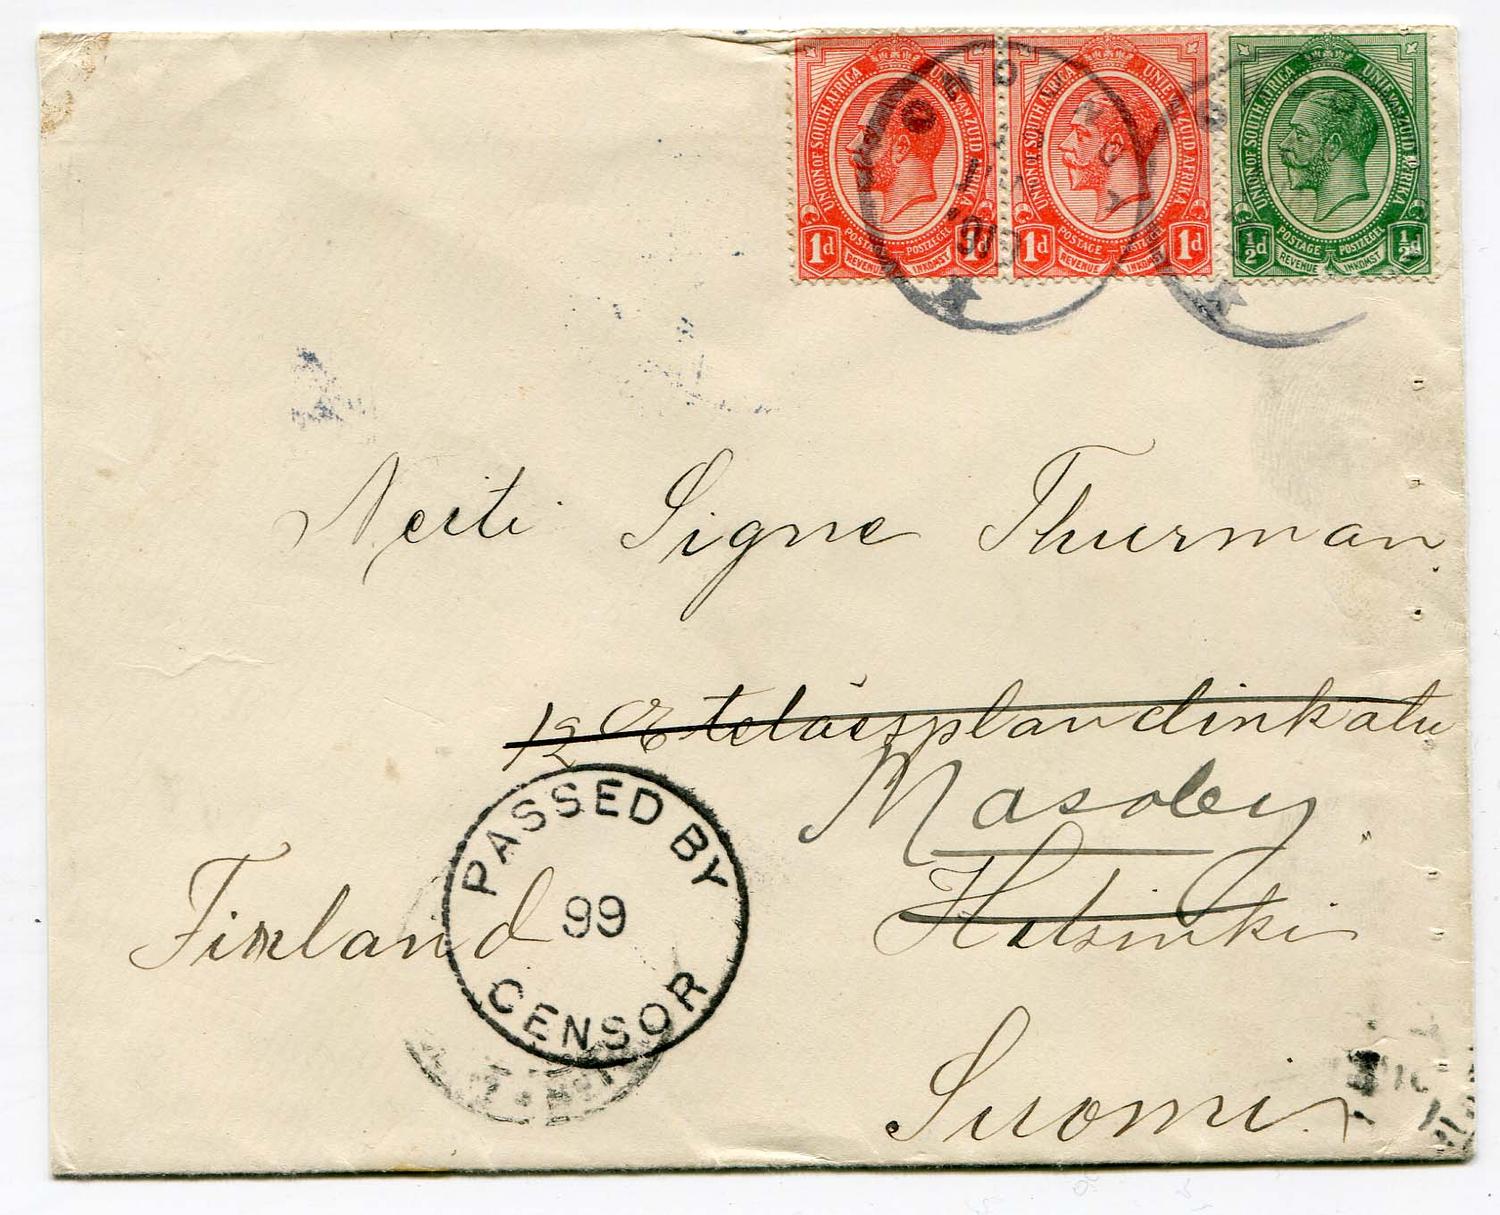 UNION OF SOUTH AFRICA UNIE VAN ZUID AFRIKA
POSTAGE — POSTZEGEL
1d REVENUE INKOMST 1d
UNION OF SOUTH AFRICA UNIE VAN ZUID AFRIKA
POSTAGE — POSTZEGEL
1d REVENUE INKOMST 1d
UNION OF SOUTH AFRICA UNIE VAN ZUID AFRIKA
POSTAGE — POSTZEGEL
½d REVENUE INKOMST ½d
Neiti Signe Thurman
12 Eteläesplandinkatu
Masaby
Helsinki
Finland
Suomi
PASSED BY
99
CENSOR